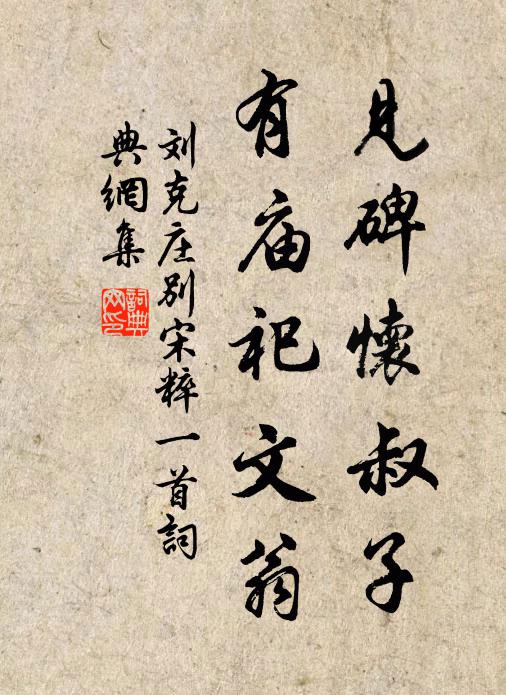 见碑懷叔子
有庙祀文翁
刘克庄别宋粹一首詞
典網集
詞典
网印